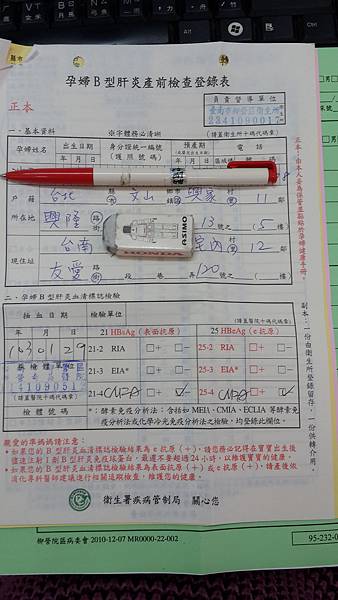 孕婦B型肝炎產前檢查登錄表
正本
負責督導單位
2341090017
(請填衛生所十碼代碼章)
一、基本資料 ※字體務必清晰
孕婦姓名
出生日期
身分證統一編號
(護照號碼)
預產期
電話
年 月 日
年 月 日
戶籍
所在地
台北
文山
興家
11
鄰
興隆
路
街
13
號之
5
(樓)
現住址
台南
里
12
鄰
友愛
路
街
段
巷
弄
120
號之
(樓)
二、孕婦B型肝炎血清標誌檢驗
(請填醫院十碼代碼章)
抽血日期
檢驗單位
年 月 日
21 HBsAg (表面抗原)
25 HBeAg (e抗原)
1030129
21-2 RIA □+ □-
25-2 RIA □+ □-
21-3 EIA* □+ □-
25-3 EIA* □+ □-
21-4 CMIA □+ ☑-
25-4 CMIA □+ ☑-
(請填醫院十碼代碼章)
檢體號碼
*:酵素免疫分析法:含括如MEIA、CMIA、ECLIA等酵素免
疫分析法或化學冷光免疫分析法之檢驗,均登錄此欄位。
親愛的準媽媽請注意:
•如果您的B型肝炎血清標誌檢驗結果為e抗原(+),請您務必記得在寶寶出生後
儘速注射1劑B型肝炎免疫球蛋白,最遲不要超過24小時,以維護寶寶的健康。
•如果您的B型肝炎血清標誌檢驗結果為表面抗原(+)或e抗原(+),請產後依
消化專科醫師建議進行相關追蹤檢查,維護您的健康。
衛生署疾病管制局 關心您
正本:由本人妥為保管並黏貼於孕婦健康手冊。
副本:一份由衛生所登錄留存,一份供轉介用。
HONDA
ASIMO
柳營院區病委會 2010-12-07 MR0000-22-002
95-232-0